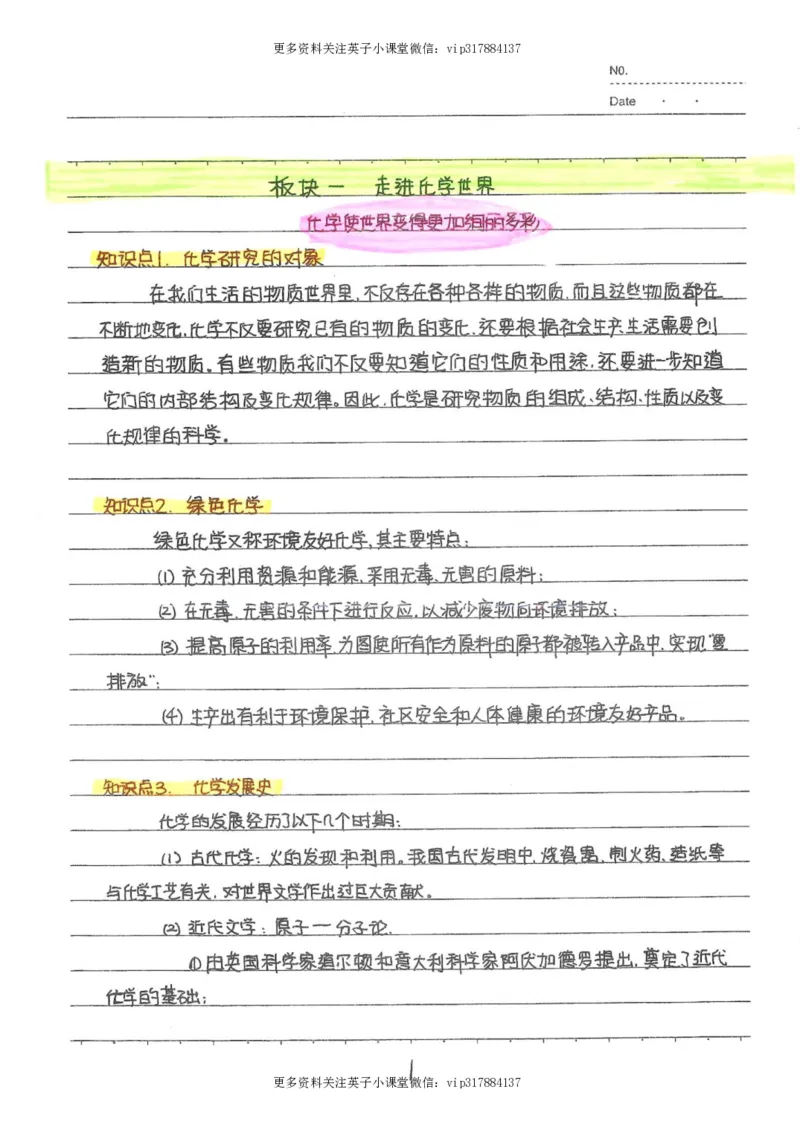 更多资料关注英子小课堂微信：vip317884137
NO.
Date · ·
板块一 走进化学世界
化学使世界变得更加绚丽多彩
知识点1. 化学研究的对象
在我们生活的物质世界里,不仅存在各种各样的物质,而且这些物质都在
不断地变化,化学不仅要研究已有的物质的变化,还要根据社会生产生活需要创
造新的物质。有些物质我们不仅要知道它们的性质和用途,还要进一步知道
它们的内部结构及变化规律。因此,化学是研究物质的组成、结构、性质以及变
化规律的科学。
知识点2. 绿色化学
绿色化学又称环境友好化学,其主要特点:
(1) 充分利用资源和能源,采用无毒、无害的原料;
(2) 在无毒、无害的条件下进行反应,以减少废物向环境排放;
(3) 提高原子的利用率,力图使所有作为原料的原子都被转入产品中,实现"零
排放";
(4) 生产出有利于环境保护,社区安全和人体健康的环境友好产品。
知识点3. 化学发展史
化学的发展经历了以下几个时期:
(1) 古代化学: 火的发现和利用。我国古代发明中,烧瓷器,制火药、造纸等
与化学工艺有关,对世界文学作出过巨大贡献。
(2) 近代文学: 原子一分子论.
①由英国科学家道尔顿和意大利科学家阿伏加德罗提出,奠定了近代
化学的基础;
1
更多资料关注英子小课堂微信：vip317884137